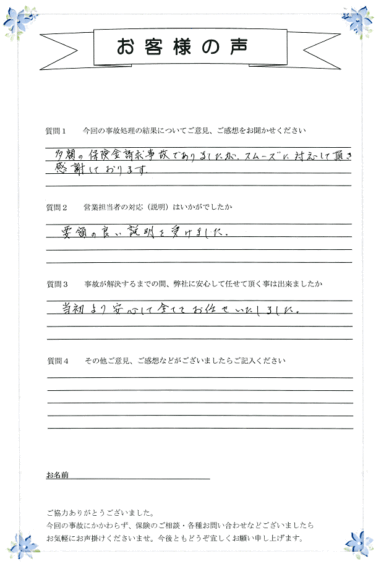 お客様の声
質問1 今回の事故処理の結果についてご意見、ご感想をお聞かせください
多額の保険金請求事故でありましたが、スムーズに対応して頂き
感謝しております。
質問2 営業担当者の対応（説明）はいかがでしたか
要領の良い説明を受けました。
質問3 事故が解決するまでの間、弊社に安心して任せて頂く事は出来ましたか
当初より安心して全てお任せいたしました。
質問4 その他ご意見、ご感想などがございましたらご記入ください
お名前
ご協力ありがとうございました。
今回の事故にかかわらず、保険のご相談・各種お問い合わせなどございましたら
お気軽にお声掛けくださいませ。今後ともどうぞ宜しくお願い申し上げます。